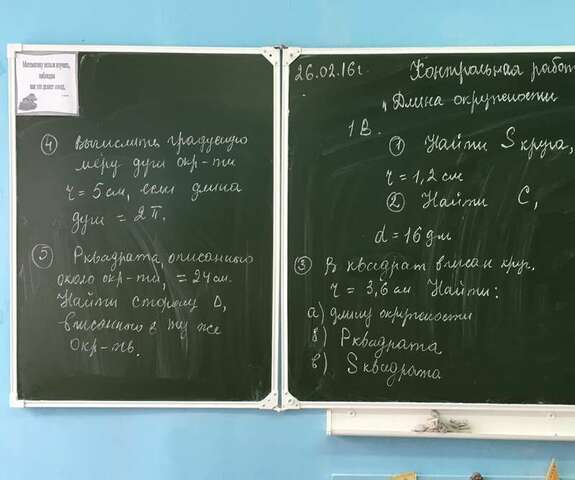 Математику нельзя изучать,
наблюдая
как это делает сосед.
④ Вычислить градусную
меру дуги окр-ти
r = 5 см, если длина
дуги = 2π.
⑤ Pквадрата, описанного
около окр-ти, = 24 см.
Найти сторону Δ,
вписанного в ту же
окр-ть.
26.02.16г.
Контрольная работ
„Длина окружности
1 В.
① Найти S круга,
r = 1,2 см
② Найти C,
d = 16 дм
③ В квадрат вписан круг.
r = 3,6 см Найти:
а) длину окружности
б) Pквадрата
в) Sквадрата